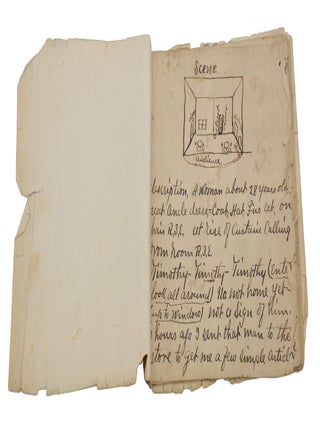 Scene
audience
description, A woman about 28 years old
neat ancle dress-Coat, Hat Fur ect, on
R.3.E. at Rise of Curtain Calling
from Room R.3.E
Timothy- Timothy- Timothy (Enter
look all around) No not home yet-
up to window) not a sign of him.
hours ago I sent that man to the
store to get me a few simple article